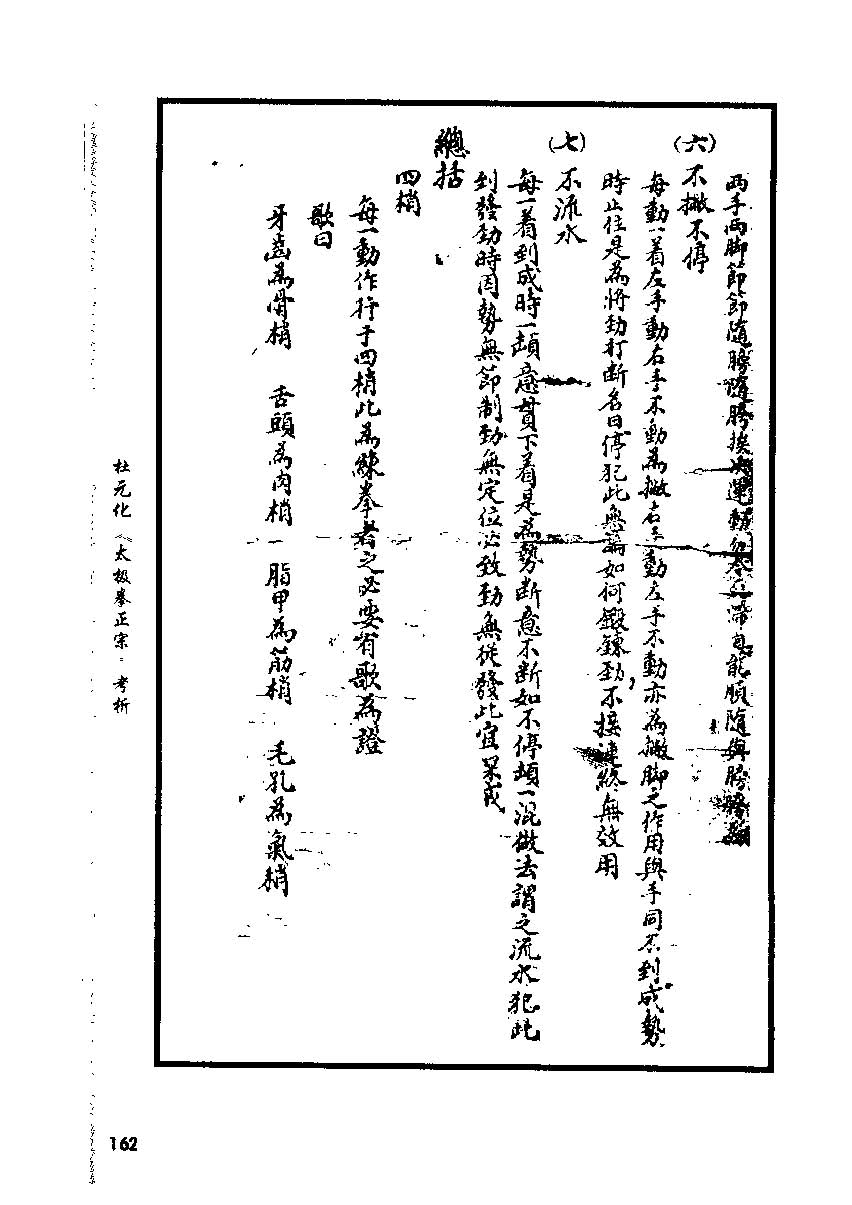 两手两脚節節隨膀隨胯挨次運動勿令停滯自能順隨與膀胯
(六)
不撇不停
每動一着左手動右手不動為撇右手動左手不動亦為撇脚之作用與手同不到成勢
時止住是為將勁打断名曰停犯此無論如何鍛鍊勁不接連終無效用
(七)
不流水
每一着到成時一頓意貫下着是為勢断意不断如不停頓一混做去謂之流水犯此
到發勁時因勢無節制勁無定位必致勁無從發此宜深戒
總括
四梢
每一動作行于四梢此為練拳者之必要有歌為證
歌曰
牙齒為骨梢 舌頭為肉梢 脂甲為筋梢 毛孔為氣梢
杜元化《太极拳正宗》考析
162